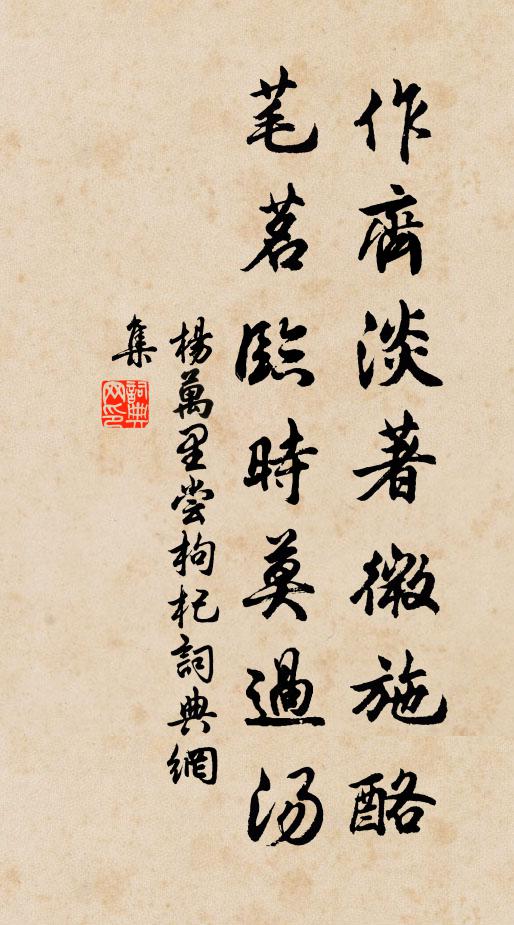 作齊淡著微施酪
芼茗臨時莫過湯
楊萬里嘗枸杞詞典網
集
詞典网印